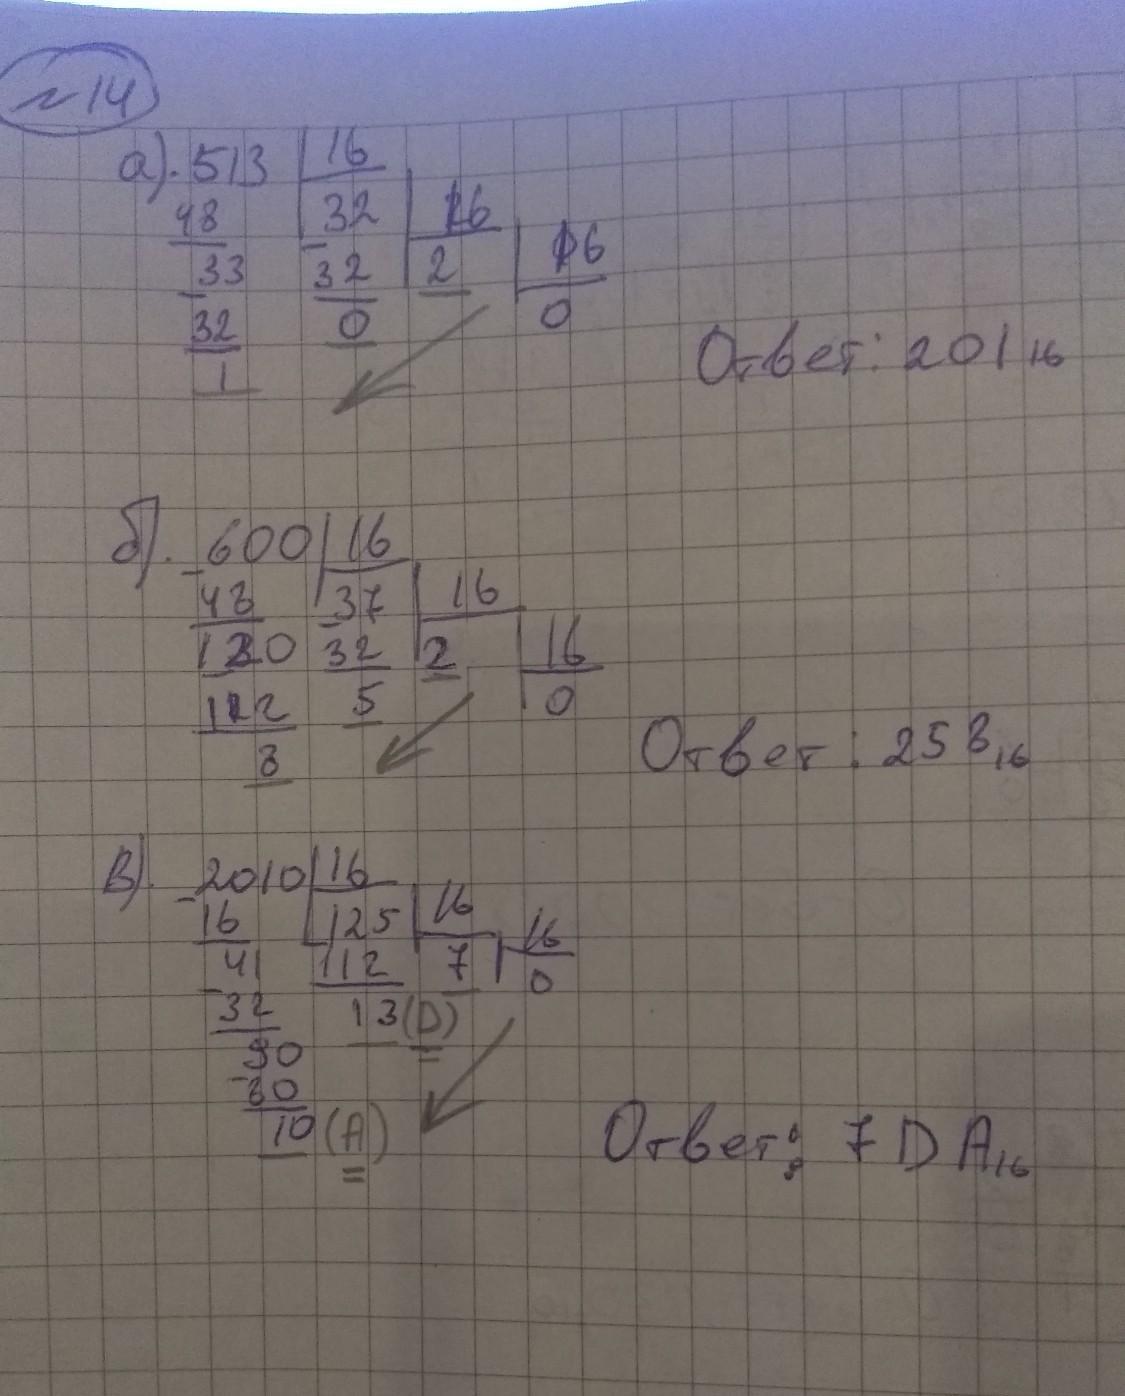 №14
а). 513 | 16
48 32 | 16
33 - 32 2 | 16
- 32 0 0
1
Ответ: 201₁₆
б). - 600 | 16
48 - 37 | 16
120 32 2 | 16
112 5 0
8
Ответ: 258₁₆
в). - 2010 | 16
16 125 | 16
41 112 7 | 16
- 32 13 (D) 0
90
- 80
10 (A)
Ответ: 7DA₁₆